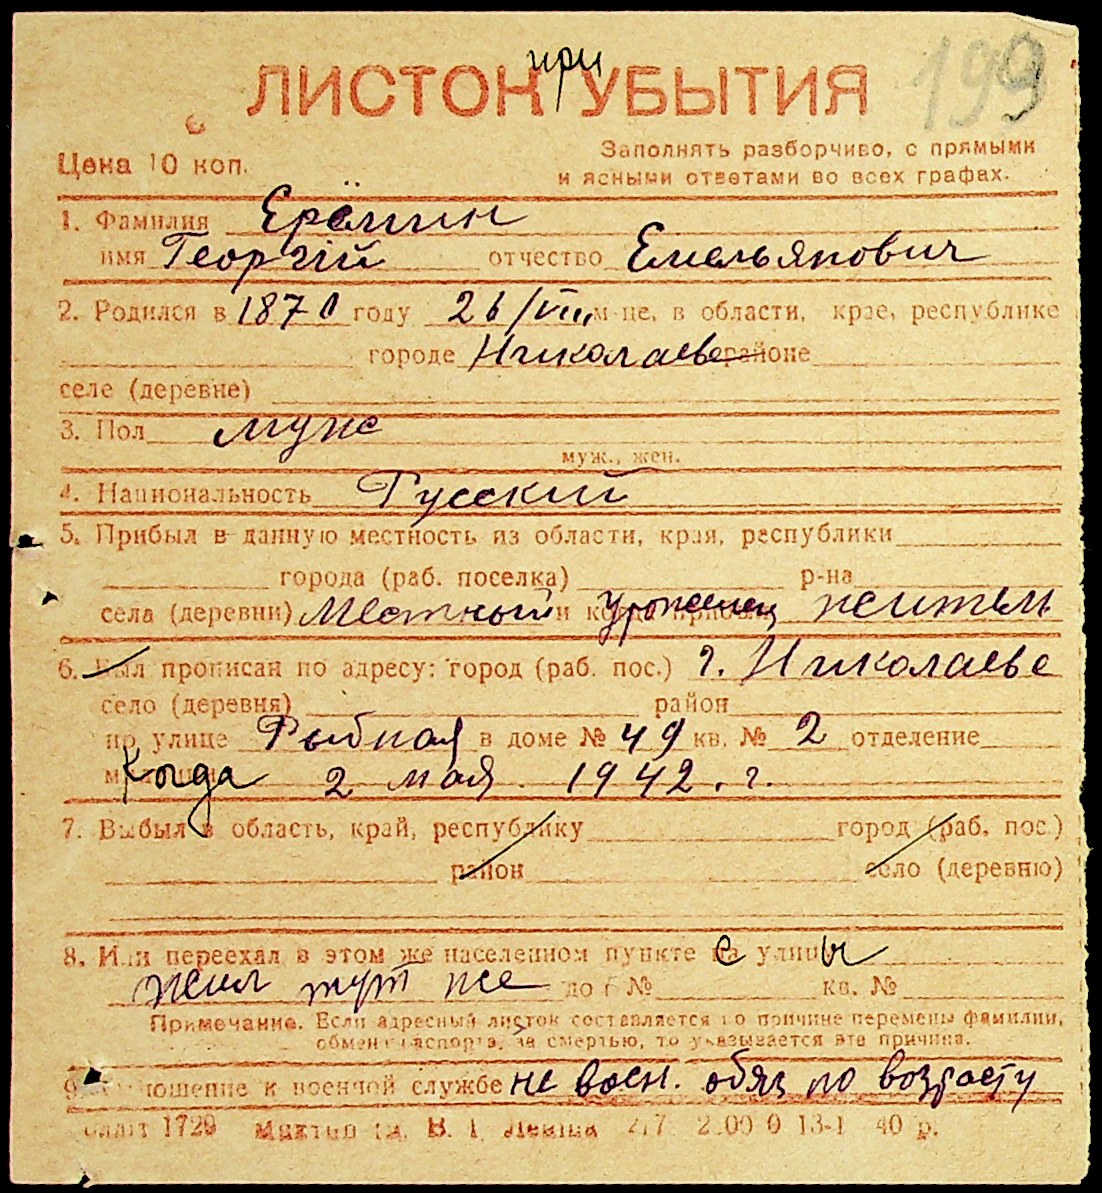 при
ЛИСТОК УБЫТИЯ
199
Цена 10 коп.
Заполнять разборчиво, с прямыми
и ясными ответами во всех графах.
1. Фамилия Ерёмин
имя Георгій отчество Емельянович
2. Родился в 1870 году 26/VIII м-це, в области, крае, республике
городе Николаеве районе
селе (деревне)
3. Пол муж
муж., жен.
4. Национальность Русский
5. Прибыл в данную местность из области, края, республики
города (раб. поселка) р-на
села (деревни) Местный и уроженец житель
6. Был прописан по адресу: город (раб. пос.) г. Николаеве
село (деревня) район
по улице Рыбная в доме № 49 кв. № 2 отделение
Когда 2 мая 1942. г.
7. Выбыл в область, край, республику город (раб. пос.)
район село (деревню)
8. Или переехал в этом же населенном пункте с улицы
жил тут же дом № кв. №
Примечание. Если адресный листок составляется по причине перемены фамилии,
обмена паспорта, за смертью, то указывается эта причина.
9. Отношение к военной службе не воен. обяз по возрасту
1729 В. Леніна 13-1 40 р.